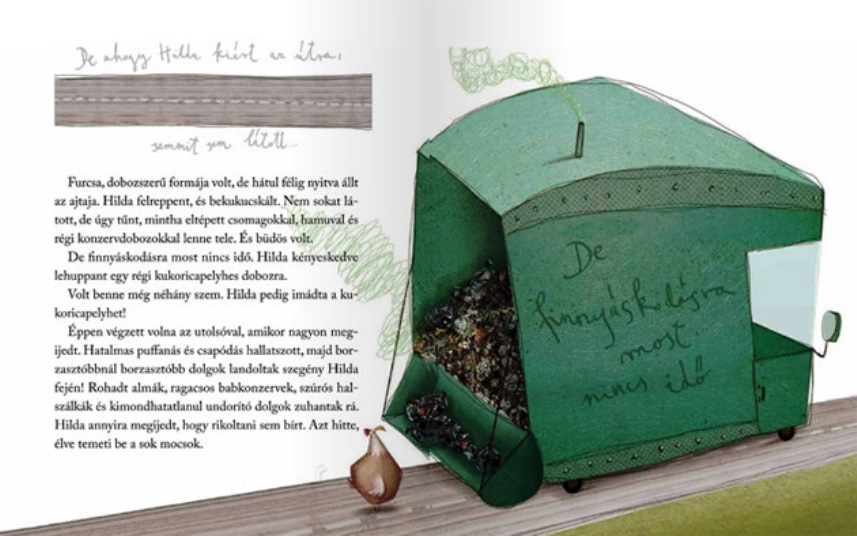 De ahogy Hilda kiért az útra,
semmit sem látott...
Furcsa, dobozszerű formája volt, de hátul félig nyitva állt
az ajtaja. Hilda felreppent, és bekukucskált. Nem sokat lá-
tott, de úgy tűnt, mintha eltépett csomagokkal, hamuval és
régi konzervdobozokkal lenne tele. És büdös volt.
De finnyáskodásra most nincs idő. Hilda kényeskedve
lehuppant egy régi kukoricapelyhes dobozra.
Volt benne még néhány szem. Hilda pedig imádta a ku-
koricapelyhet!
Éppen végzett volna az utolsóval, amikor nagyon meg-
ijedt. Hatalmas puffanás és csapódás hallatszott, majd bor-
zasztóbbnál borzasztóbb dolgok landoltak szegény Hilda
fején! Rohadt almák, ragacsos babkonzervek, szúrós hal-
szálkák és kimondhatatlanul undorító dolgok zuhantak rá.
Hilda annyira megijedt, hogy rikoltani sem bírt. Azt hitte,
élve temeti be a sok mocsok.
De
finnyáskodásra
most
nincs idő